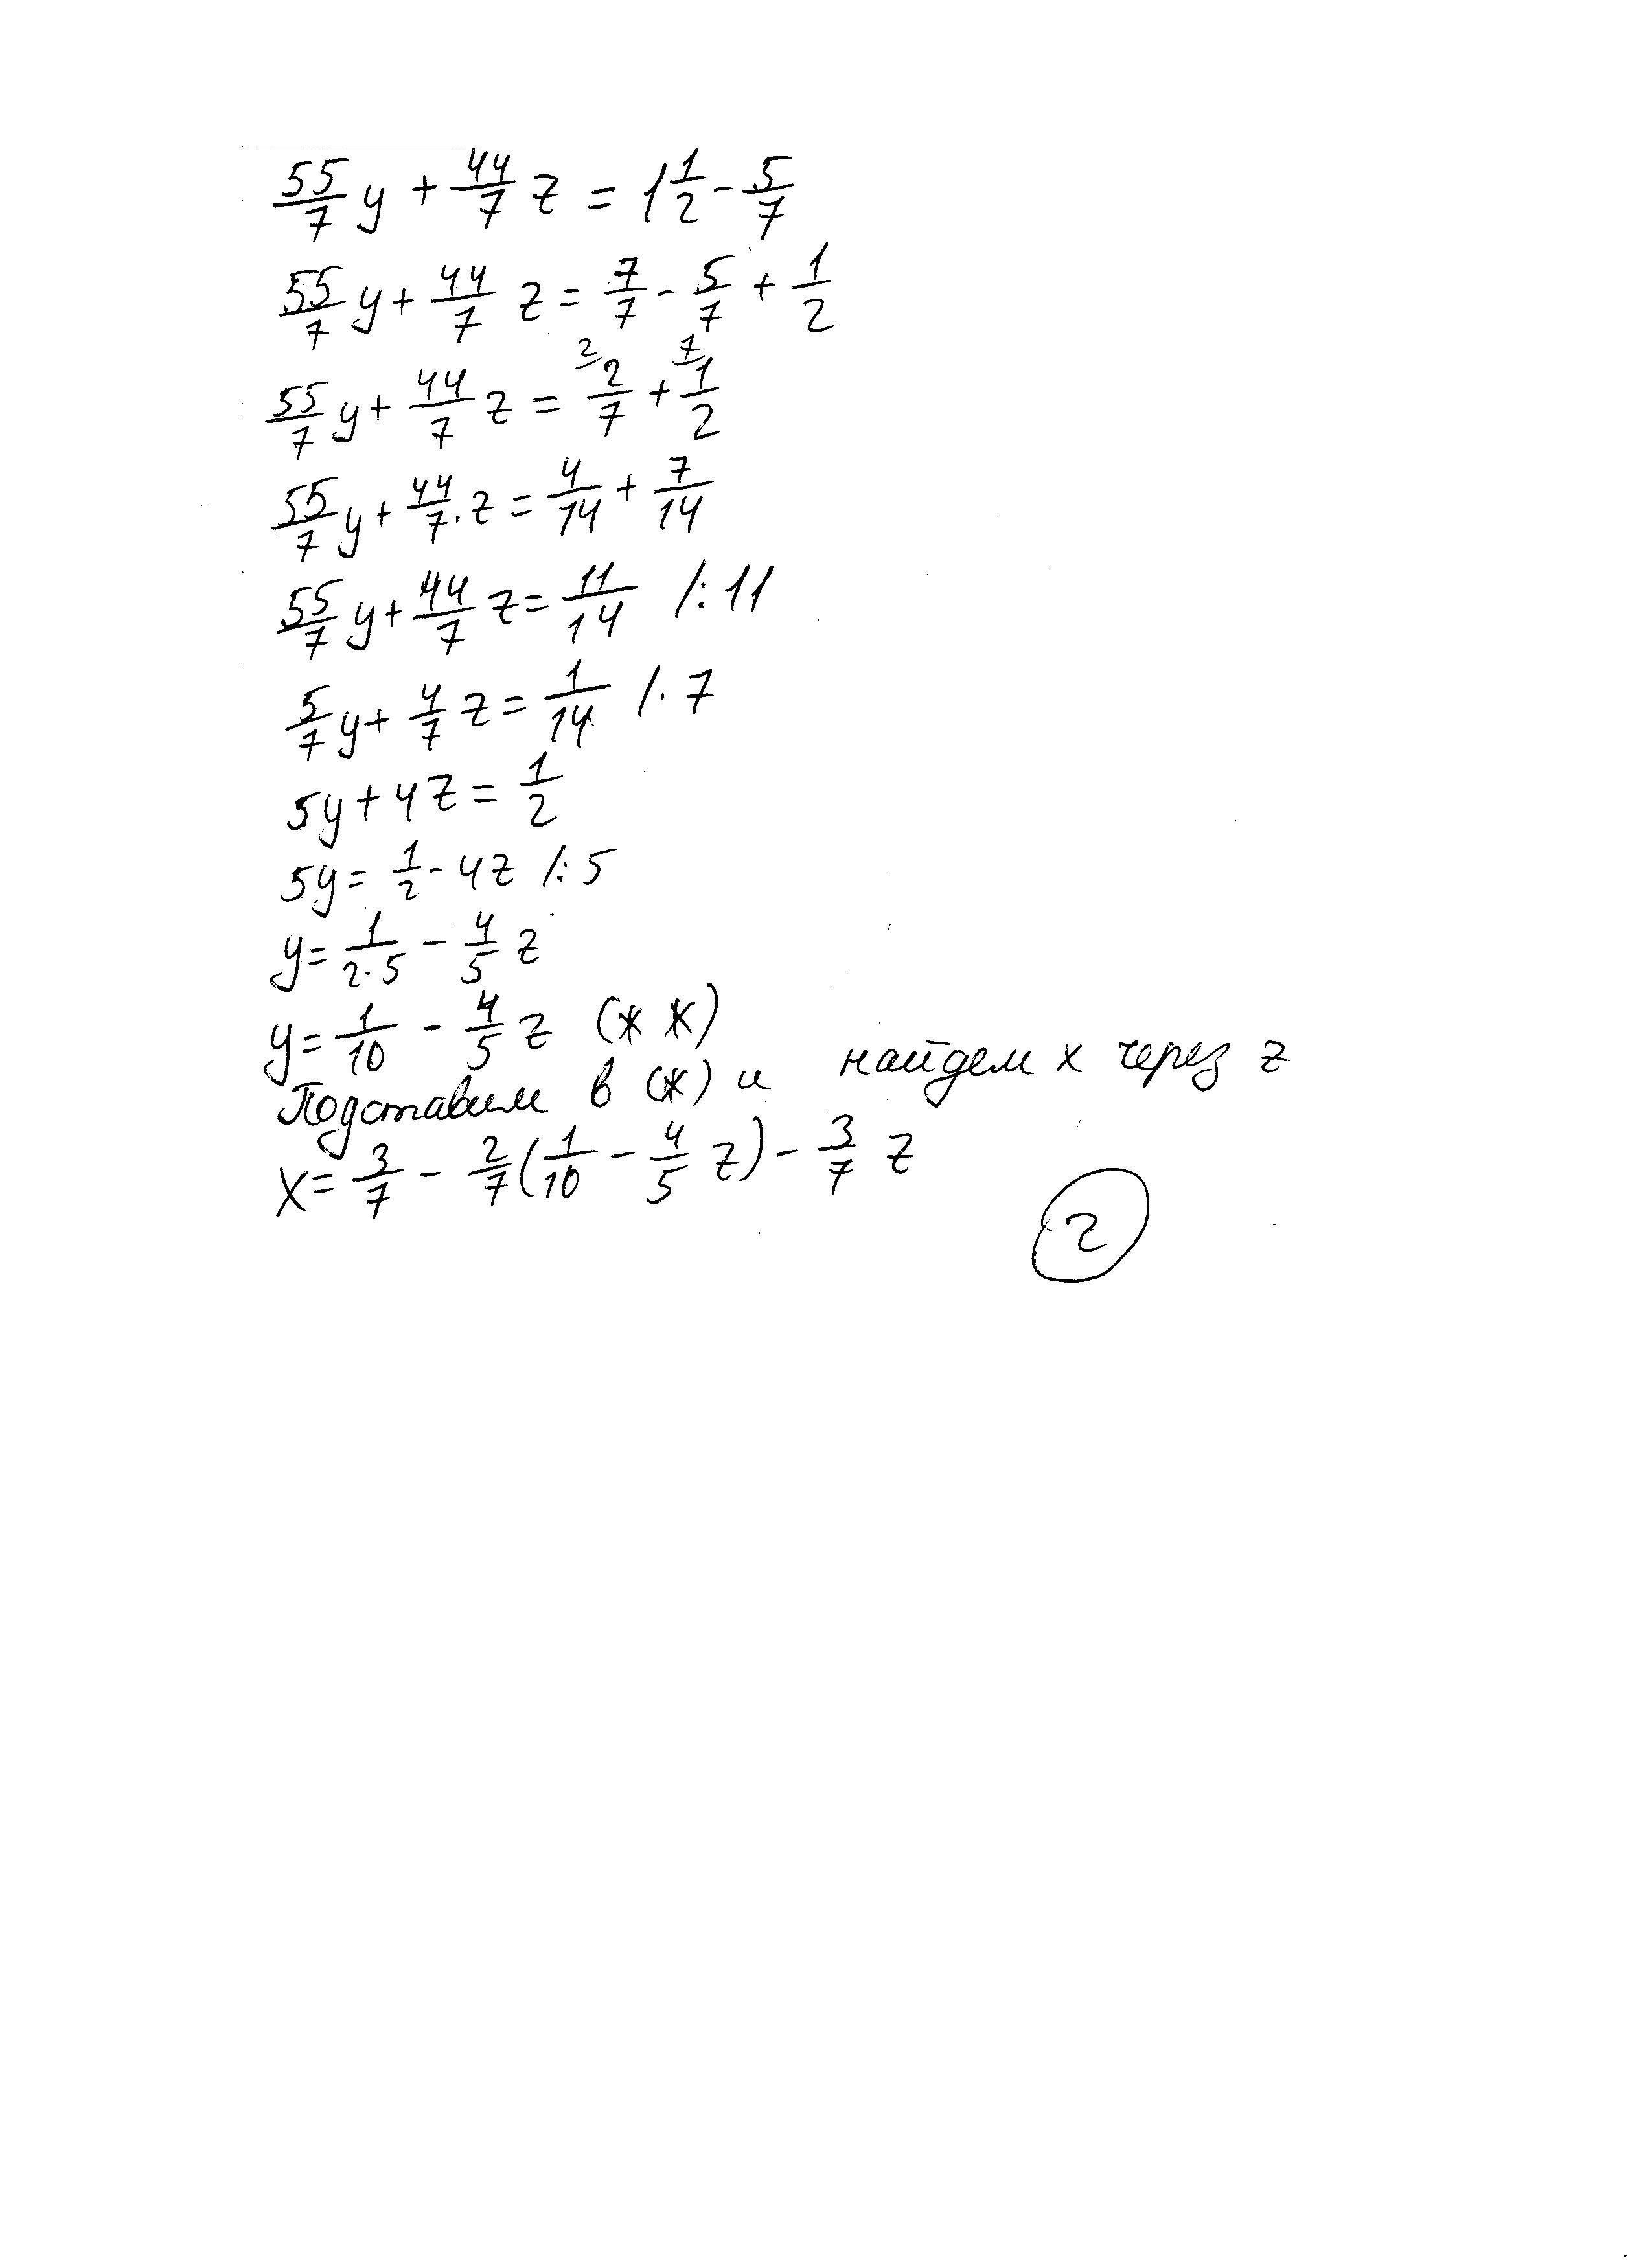 55/7 y + 44/7 z = 1 1/2 - 5/7
55/7 y + 44/7 z = 7/7 - 5/7 + 1/2
55/7 y + 44/7 z = ²⁄ 2/7 + ⁷⁄ 1/2
55/7 y + 44/7 · z = 4/14 + 7/14
55/7 y + 44/7 z = 11/14 /:11
5/7 y + 4/7 z = 1/14 /·7
5y + 4z = 1/2
5y = 1/2 - 4z /:5
y = 1/2·5 - 4/5 z
y = 1/10 - 4/5 z (**)
Подставим в (*) и найдем x через z
x = 3/7 - 2/7 (1/10 - 4/5 z) - 3/7 z
2